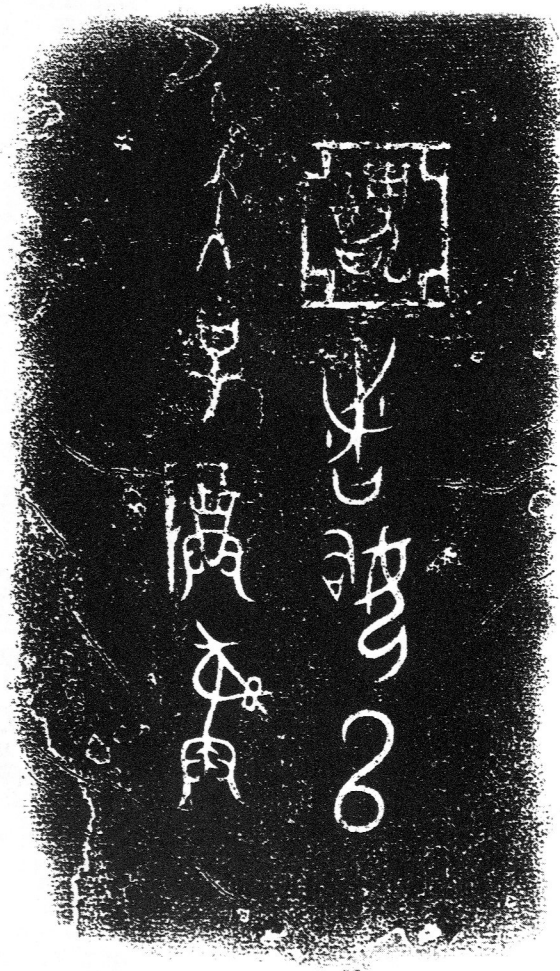 亞醜者姤以
大子尊彝